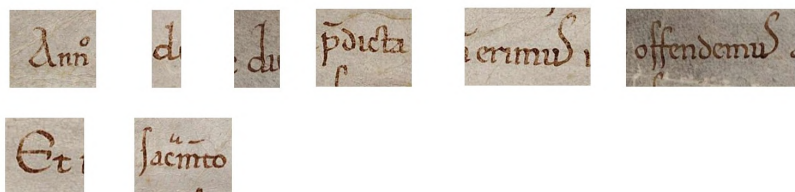 Anno de du p̄dicta erimus offendemus
Et sac̄mto